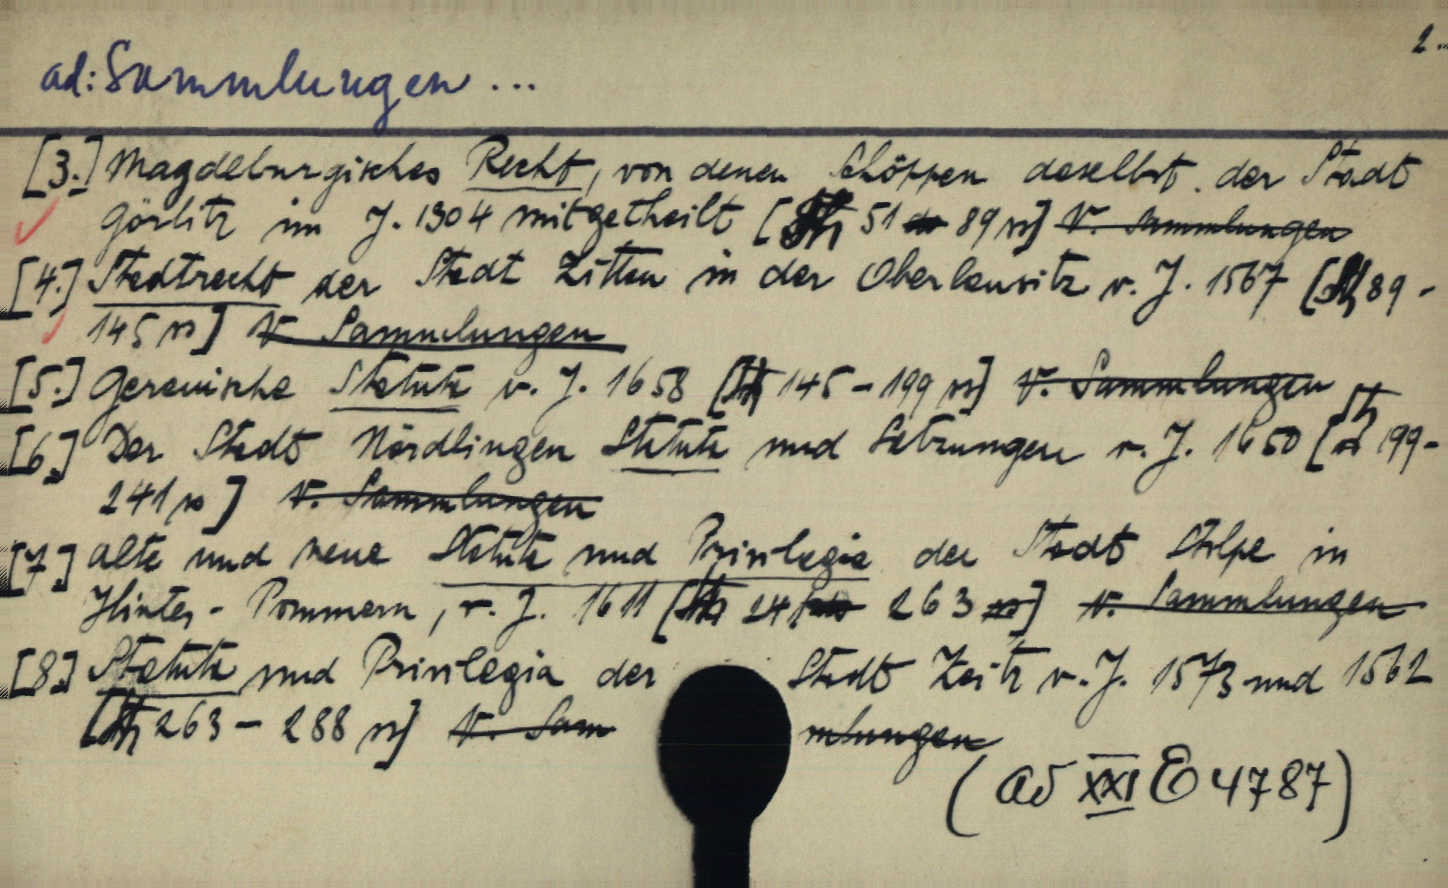 2...
ad: Sammlungen ...
[3.] Magdeburgisches Recht, von denen Schöppen daselbst der Stadt
Görlitz im J. 1304 mitgetheilt [Sh 51 89 rs] V. Sammlungen
[4.] Stadtrecht der Stadt Zittau in der Oberlausitz v. J. 1567 [Sh 89 -
145 rs] V. Sammlungen
[5.] Gerauische Statuta v. J. 1658 [Sh 145 - 199 rs] V. Sammlungen
[6.] Der Stadt Nördlingen Statuta und Satzungen v. J. 1650 [Sh 199 -
241 rs] V. Sammlungen
[7] Alte und neue Statuta und Privilegia der Stadt Stolpe in
Hinter-Pommern, v. J. 1611 [Sh 241 263 rs] V. Sammlungen
[8] Statuta und Privilegia der Stadt Zeitz v. J. 1573 und 1562
[Sh 263 - 288 rs] V. Sammlungen
(Ad XXI E 4787)